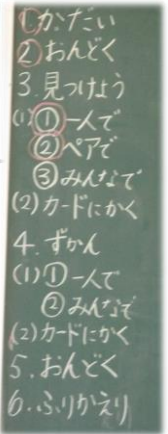 ①かだい
②おんどく
3.見つけよう
(1)①一人で
②ペアで
③みんなで
(2)カードにかく
4.ずかん
(1)①一人で
②みんなで
(2)カードにかく
5.おんどく
6.ふりかえり